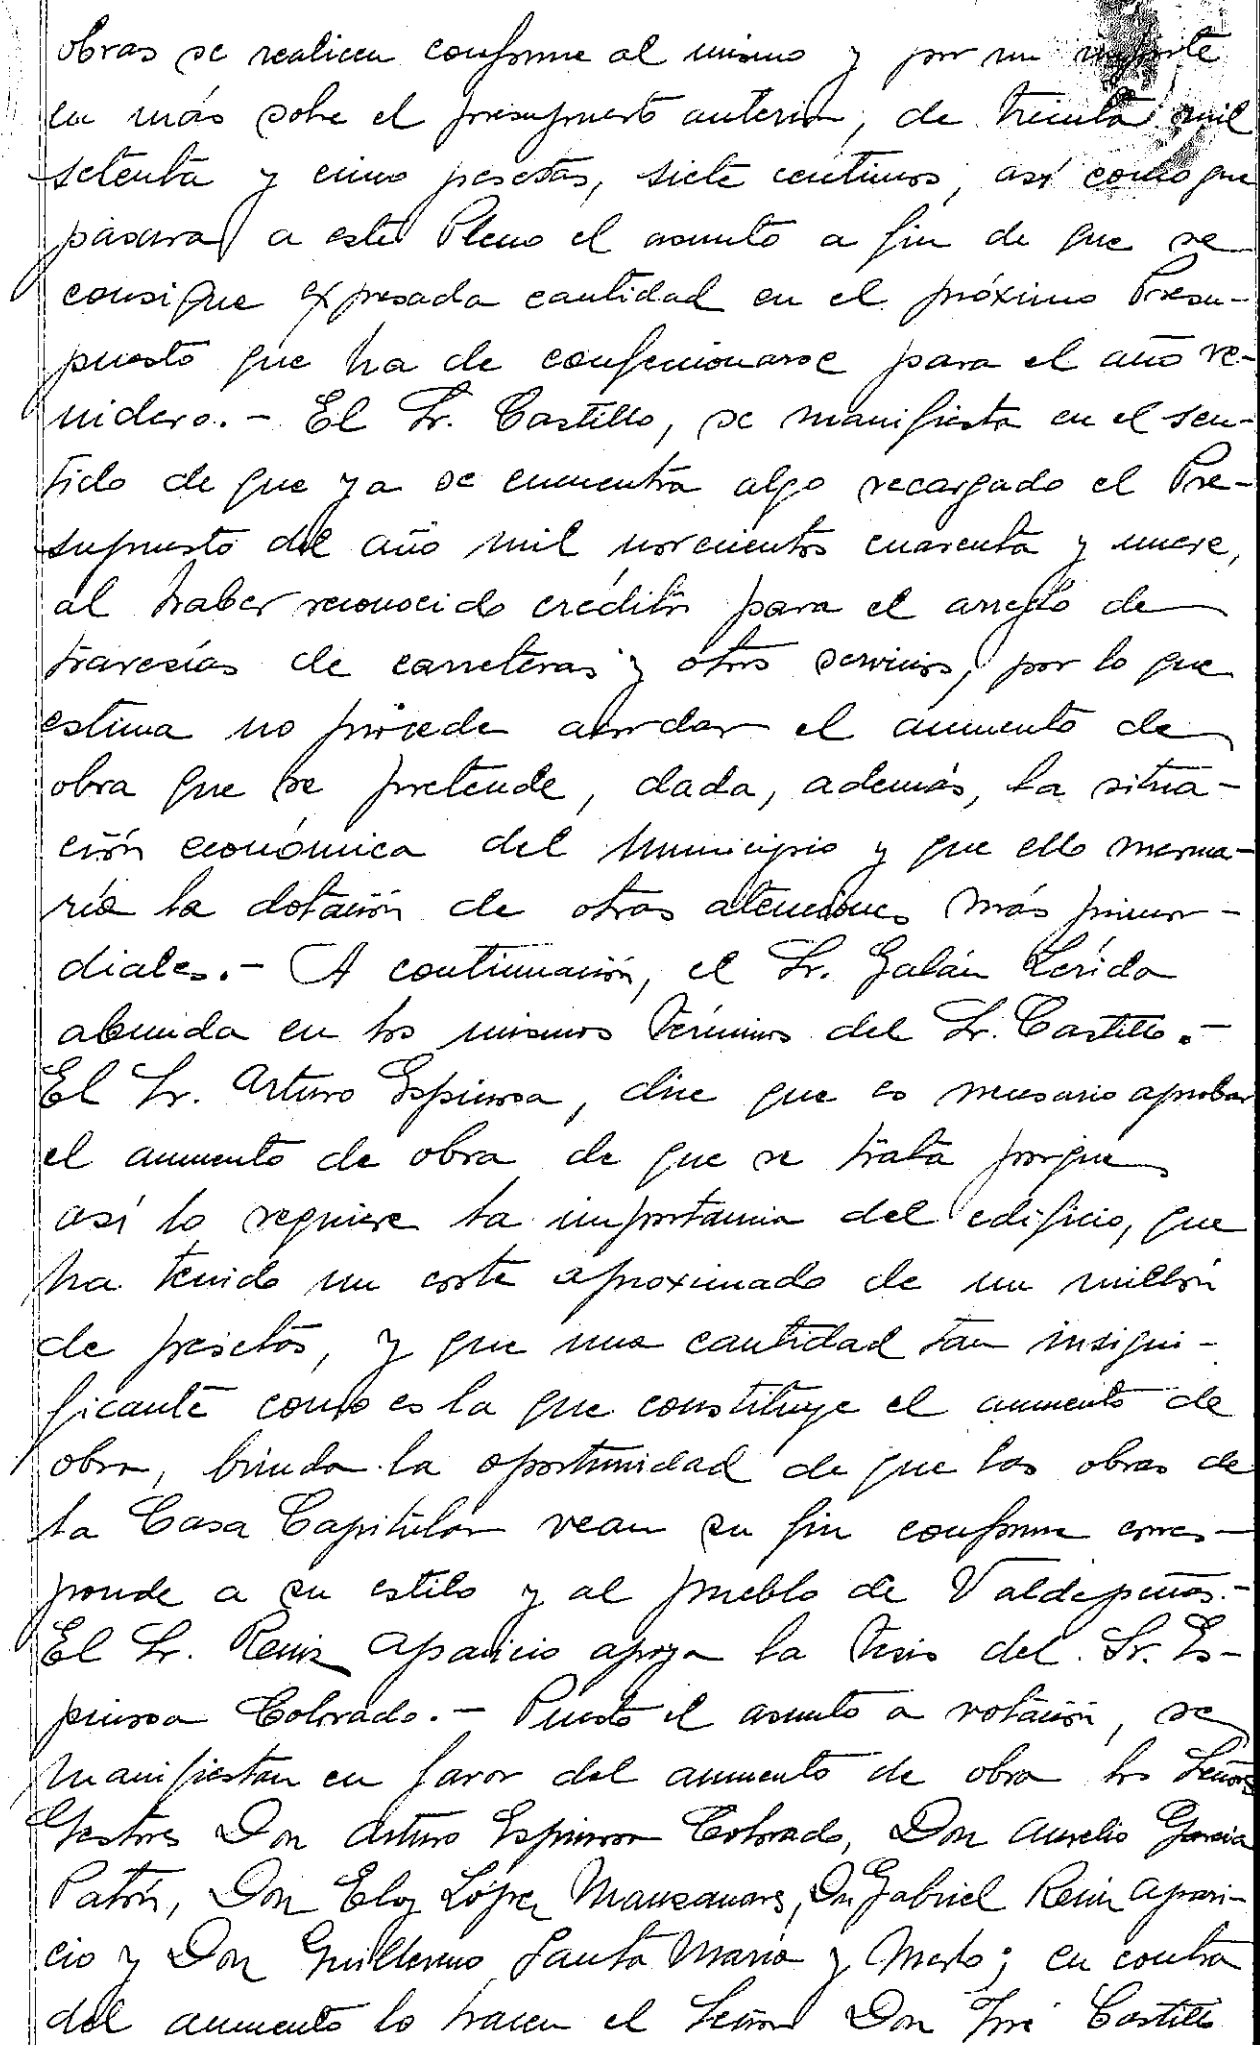 obras se realicen conforme al mismo y por un importe
en más sobre el presupuesto anterior, de treinta mil
setenta y cinco pesetas, siete centimos, así como que
pasara a este Pleno el asunto a fin de que se
consigne expresada cantidad en el próximo Presu-
puesto que ha de confeccionarse para el año ve-
nidero.- El Sr. Castillo, se manifiesta en el sen-
tido de que ya se encuentra algo recargado el Pre-
supuesto del año mil novecientos cuarenta y nueve,
al haber reconocido créditos para el arreglo de
travesías de carreteras y otros servicios, por lo que
estima no procede acordar el aumento de
obra que se pretende, dada, además, la situa-
ción económica del Municipio y que ello merma-
ría la dotación de otras atenciones más primor-
diales.- A continuación, el Sr. Galán Lérida
abunda en los mismos términos del Sr. Castillo.-
El Sr. Arturo Espinosa, dice que es necesario aprobar
el aumento de obra de que se trata porque
así lo requiere la importancia del edificio, que
ha tenido un coste aproximado de un millón
de pesetas, y que una cantidad tan insigni-
ficante como es la que constituye el aumento de
obra, brinda la oportunidad de que las obras de
la Casa Capitular vean su fin conforme corres-
ponde a su estilo y al pueblo de Valdepeñas.-
El Sr. Aparicio apoya la tesis del Sr. Es-
pinosa Colorado.- Puesto el asunto a votación, se
manifiestan en favor del aumento de obra los Señores
Gestores Don Arturo Espinosa Colorado, Don Aurelio Garcia
Patón, Don Eloy López Manzanares, Don Gabriel Apari-
cio y Don Guillermo Santa María y Merlo; en contra
del aumento lo hacen el Señor Don José Castillo